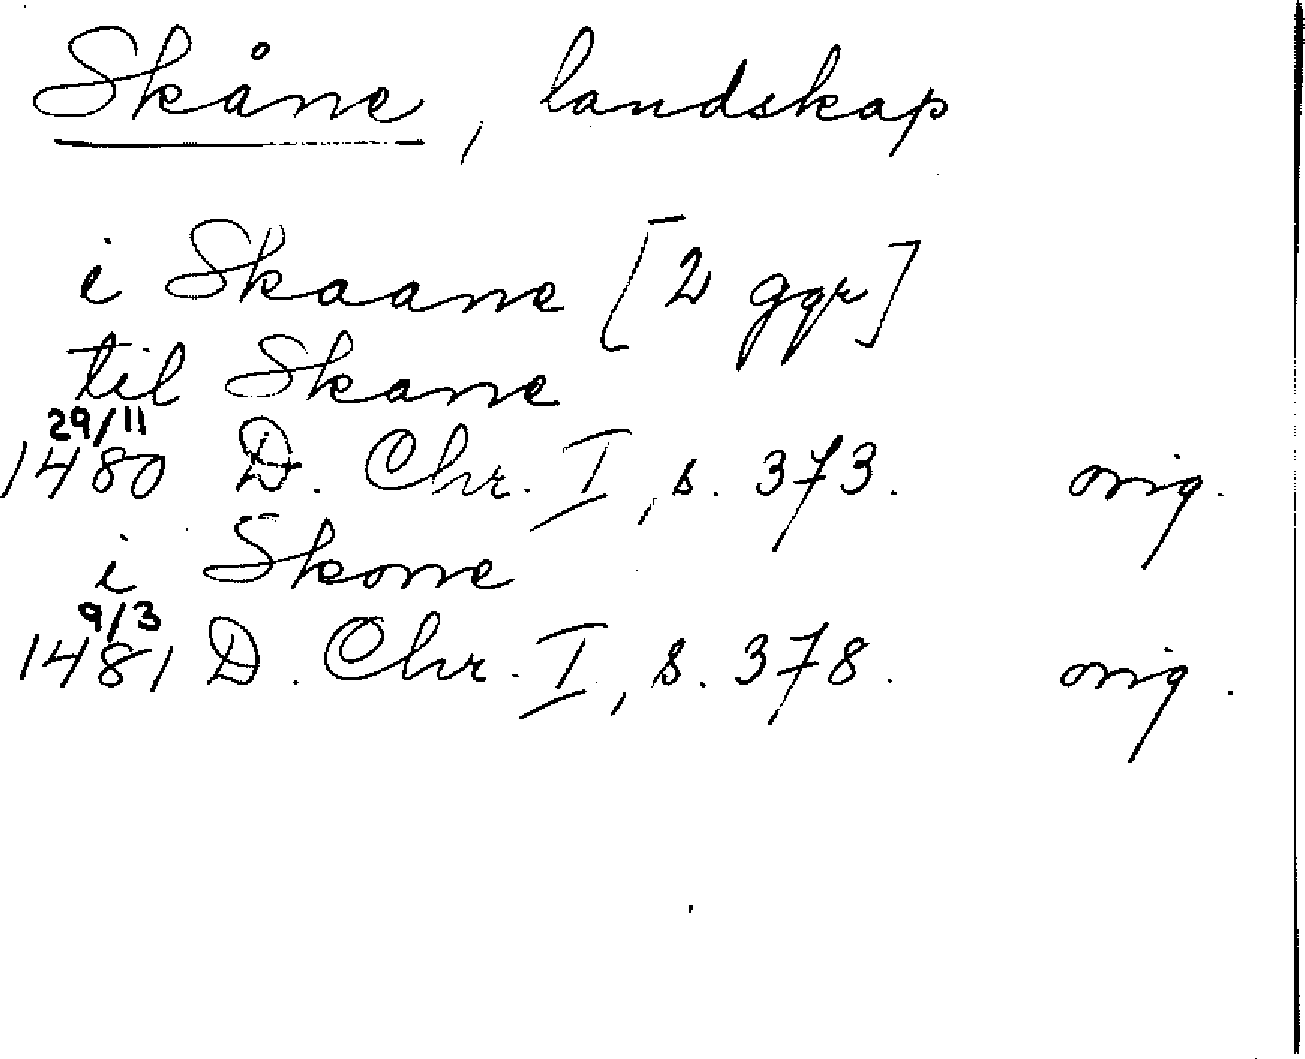 Skåne, landskap
i Skaane [2 ggr]
til Skane
29/11
1480 D. Chr. I, s. 373. orig.
i Skone
9/3
1481 D. Chr. I, s. 378. orig.